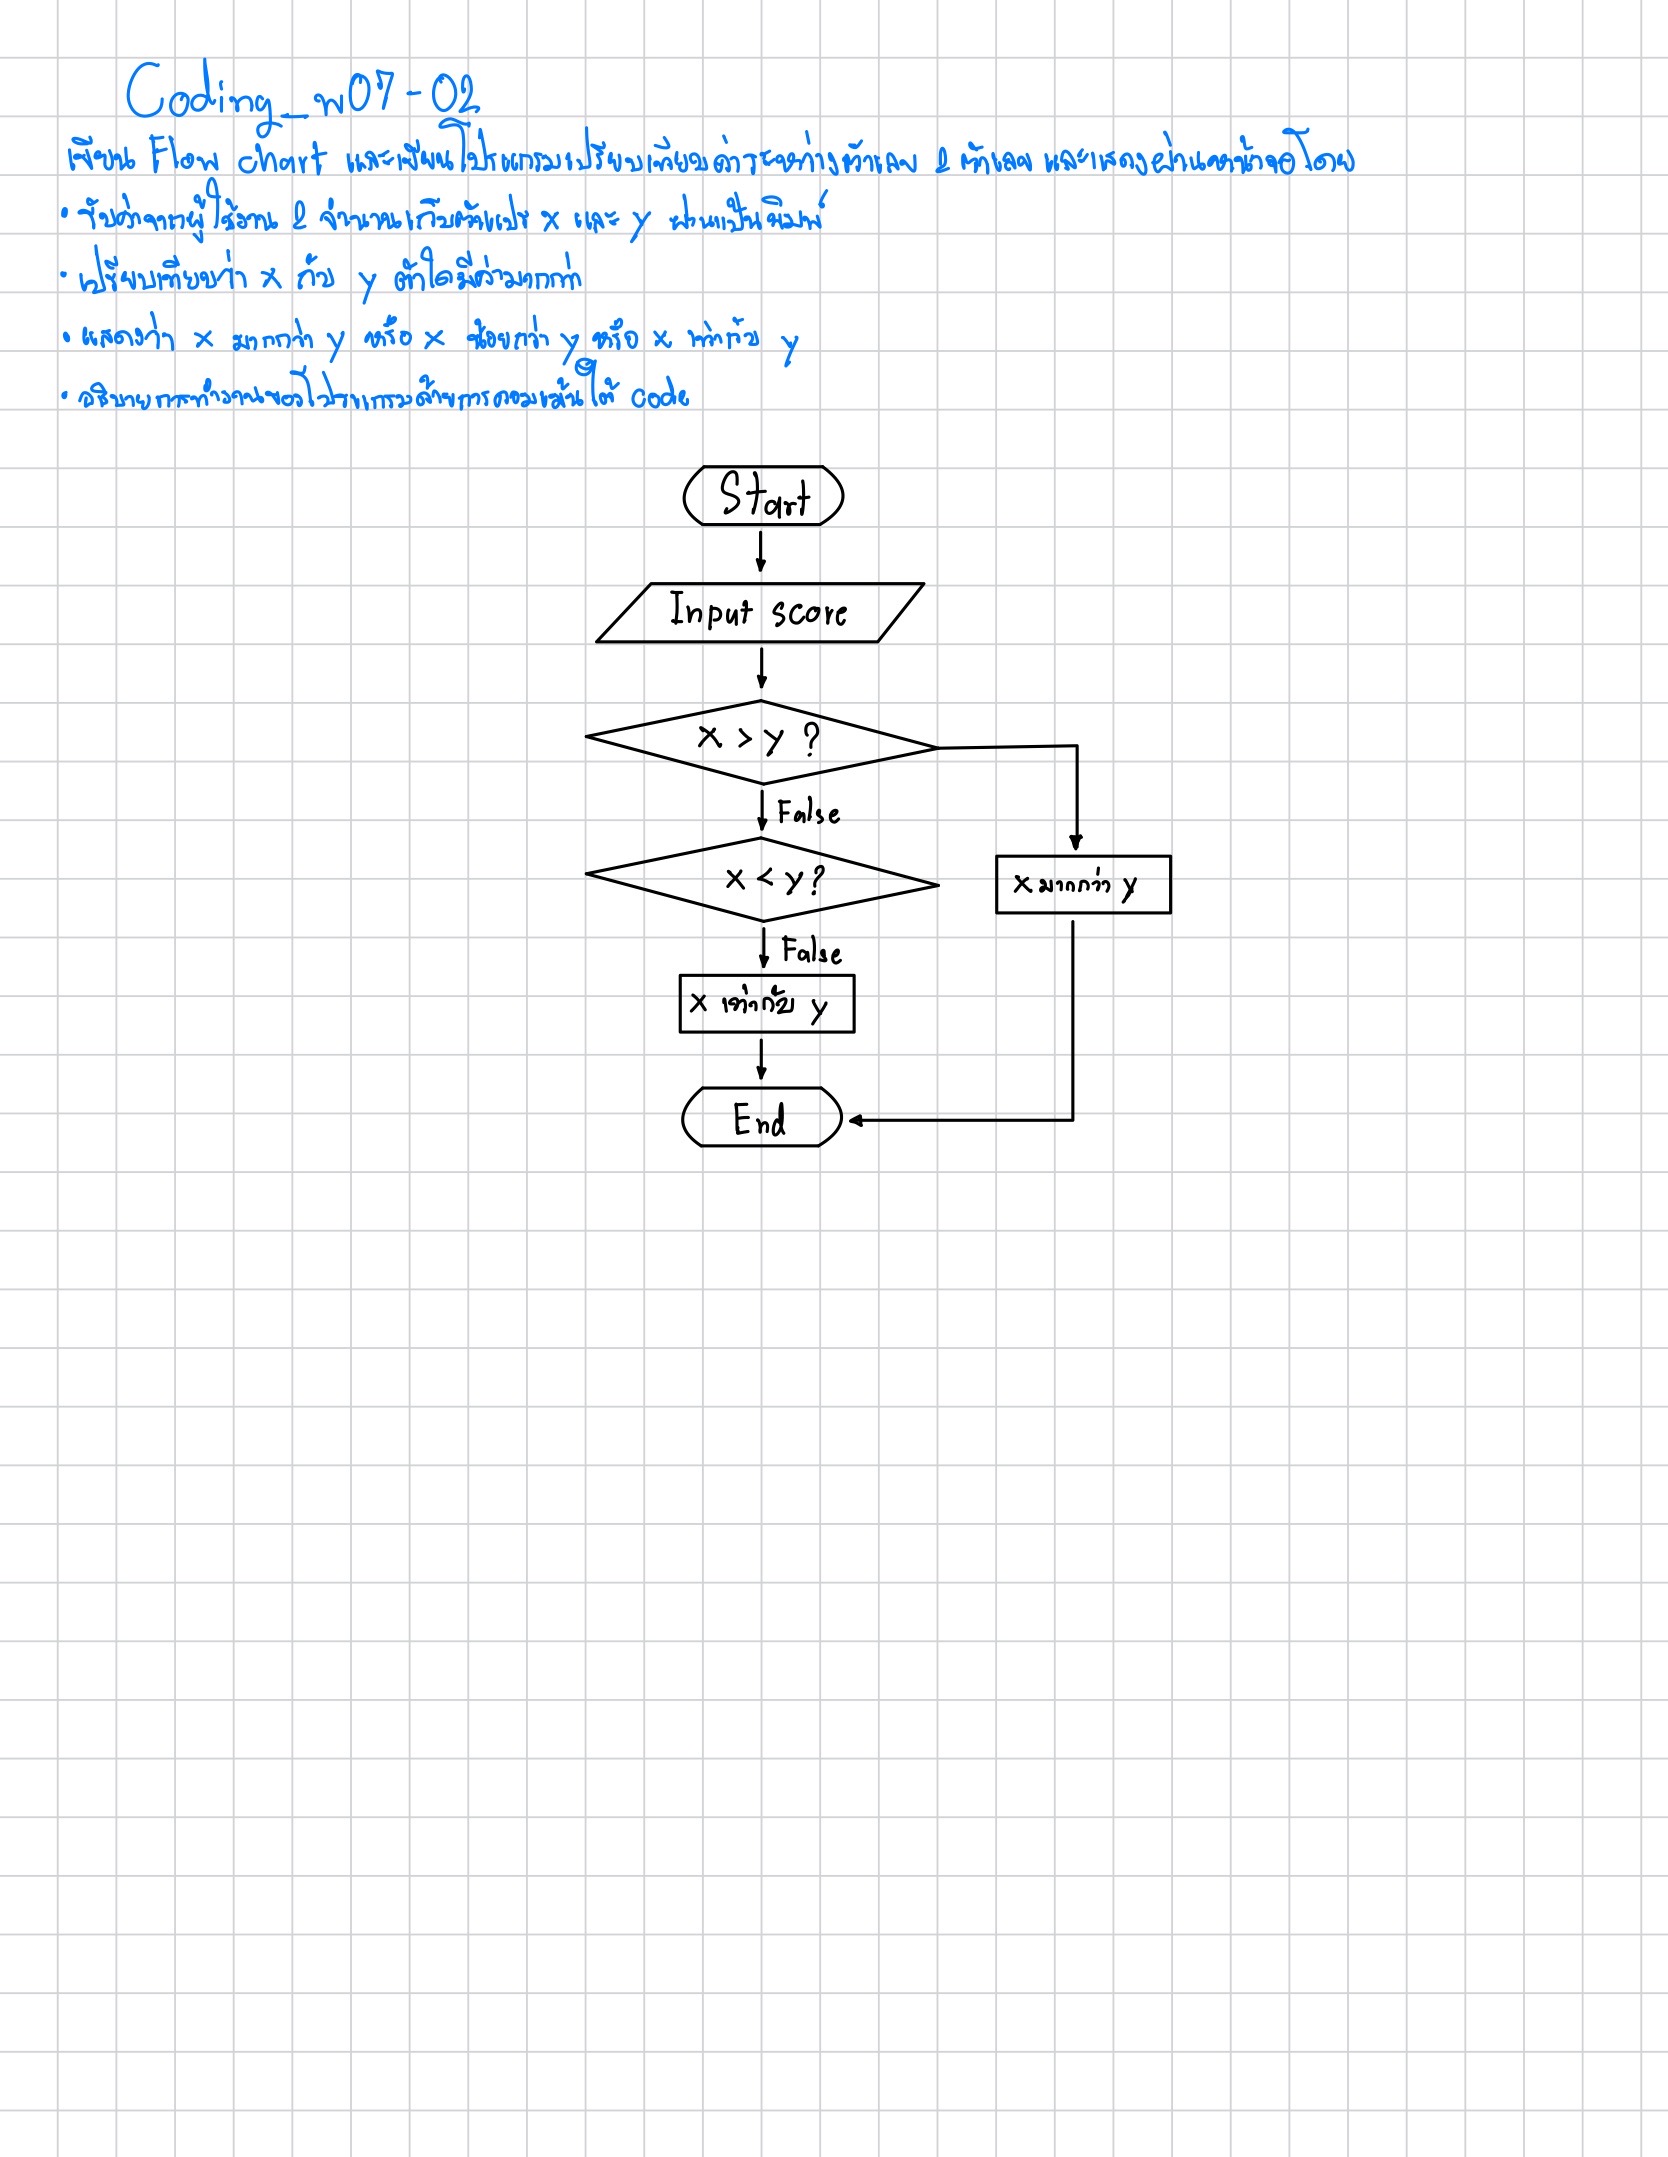 Coding_w07-02
เขียน Flow chart และเขียนโปรแกรมเปรียบเทียบค่าระหว่างตัวเลข 2 ตัวเลข และแสดงผ่านหน้าจอโดย
• รับค่าจากผู้ใช้งาน 2 จำนวนเก็บตัวแปร x และ y ผ่านแป้นพิมพ์
• เปรียบเทียบว่า x กับ y ตัวใดมีค่ามากกว่า
• แสดงว่า x มากกว่า y หรือ x น้อยกว่า y หรือ x เท่ากับ y
• อธิบายการทำงานของโปรแกรมด้วยการคอมเม้นใต้ code
Start
Input score
x > y ?
False
x < y ?
x มากกว่า y
False
x เท่ากับ y
End